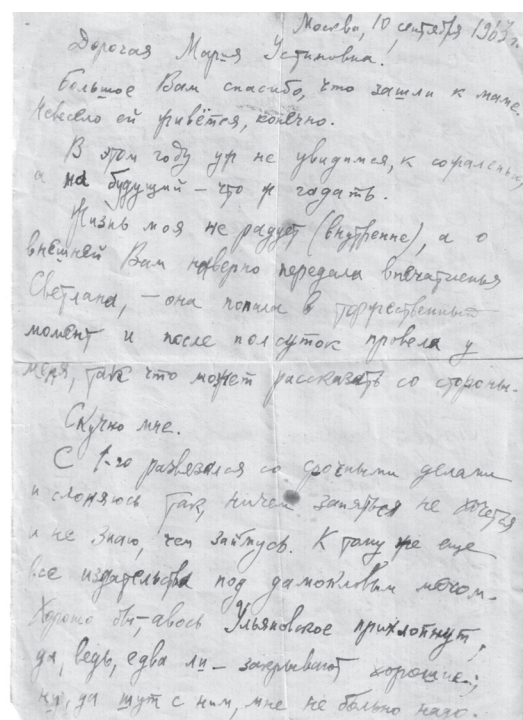 Москва, 10 сентября 1963 г.
Дорогая Мария Устиновна.
Большое Вам спасибо, что зашли к маме.
Невесело ей живётся, конечно.
В этом году уж не увидимся, к сожаленью,
а на будущий – что ж гадать.
Жизнь моя не радует (внутренне), а о
внешней Вам наверно передала впечатленья
Светлана, – она попала в торжественный
момент и после полсуток провела у
меня, так что может рассказать со стороны.
Скучно мне.
С 1-го развязался со срочными делами
и слоняюсь так, ничем заняться не хочется
и не знаю, чем займусь. К тому же еще
все издательства под дамокловым мечом.
Хорошо бы, авось Ульяновское прихлопнут,
да, ведь, едва ли – закрывают хорошие;
ну, да шут с ним, мне не больно надо.